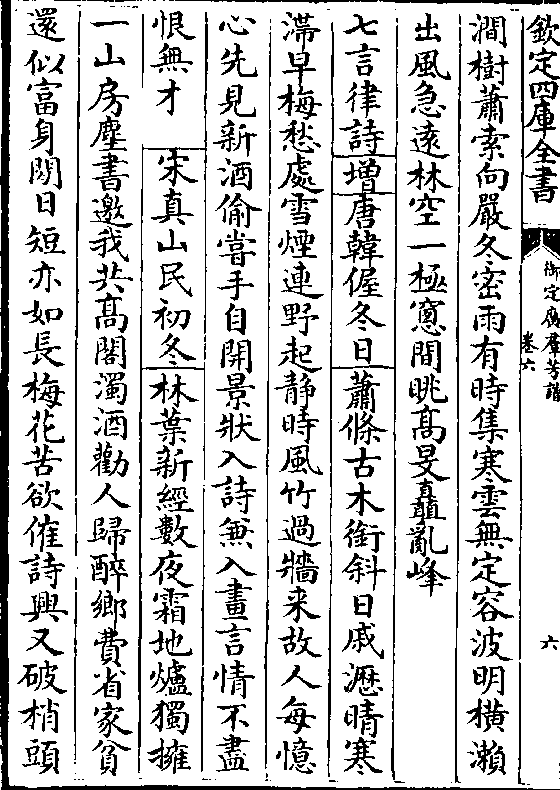 欽定四庫全書
御定廣羣芳譜
卷六
六
澗樹蕭索向嚴冬密雨有時集寒雲無定容波明橫瀨
出風急遠林空一極窻間眺髙旻矗亂峰
七言律詩增唐韓偓冬日蕭條古木銜斜日戚瀝晴寒
滯早梅愁處雪煙連野起静時風竹過牆来故人每憶
心先見新酒偷嘗手自開景狀入詩兼入畫言情不盡
恨無才　宋真山民初冬林葉新經數夜霜地爐獨擁
一山房塵書邀我共髙閣濁酒勸人歸醉鄉費省家貧
還似富身閒日短亦如長梅花苦欲催詩興又破梢頭